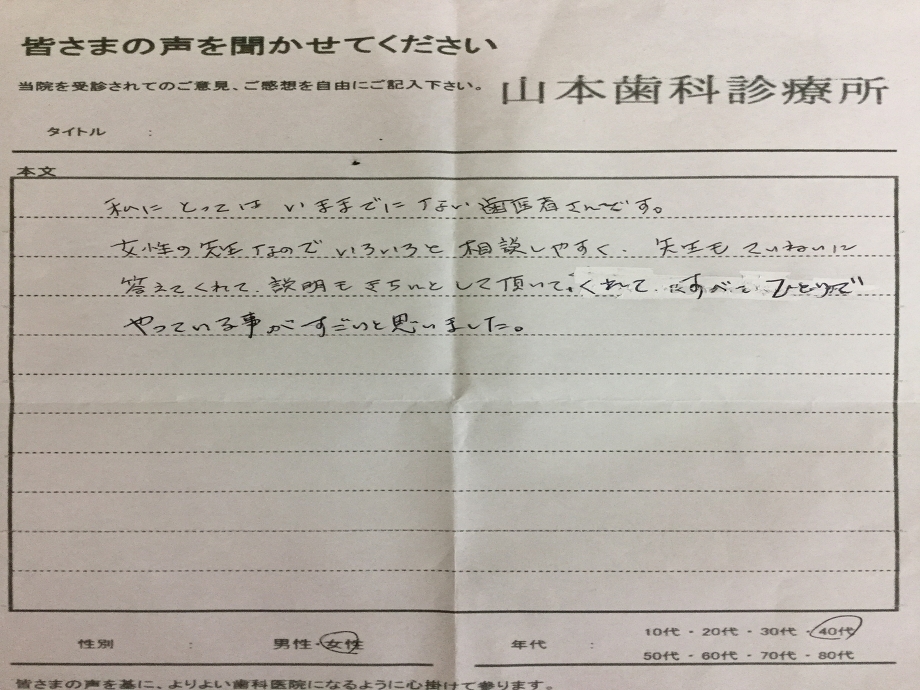 皆さまの声を聞かせてください
当院を受診されてのご意見、ご感想を自由にご記入下さい。
山本歯科診療所
タイトル :
本文
私にとってはいままでにない歯医者さんです。
女性の先生なのでいろいろと相談しやすく、先生もていねいに
答えてくれて、説明もきちんとして頂いて。くれて すべて ひとりで
やっている事がすごいと思いました。
性別 : 男性・女性
年代 : 10代・20代・30代・40代
50代・60代・70代・80代
皆さまの声を基に、よりよい歯科医院になるように心掛けて参ります。